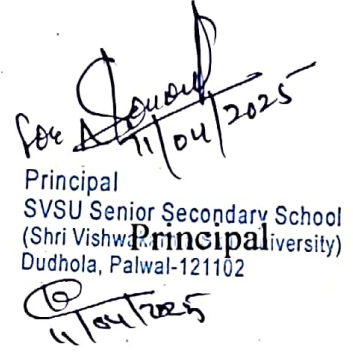 for
11/04/2025
Principal
SVSU Senior Secondary School
(Shri Vishwa Principal iversity)
Dudhola, Palwal-121102
11/04/2025